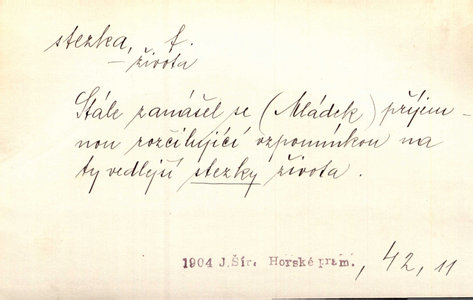 stezka, f.
– života
Stále zanášel se (Mládek) příjem-
nou rozčilující vzpomínkou na
ty vedlejší stezky života.
1904 J.Šír. Horské pram. , 42, 11